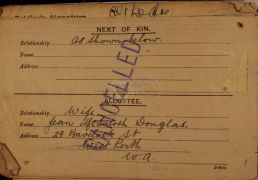 NEXT OF KIN.
Relationship As shown below.
Name
Address
(2)
CANCELLED
ALLOTTEE.
Relationship Wife
Name Jean McIntosh Douglas.
Address 29 Havelock St
West Perth
W.A.